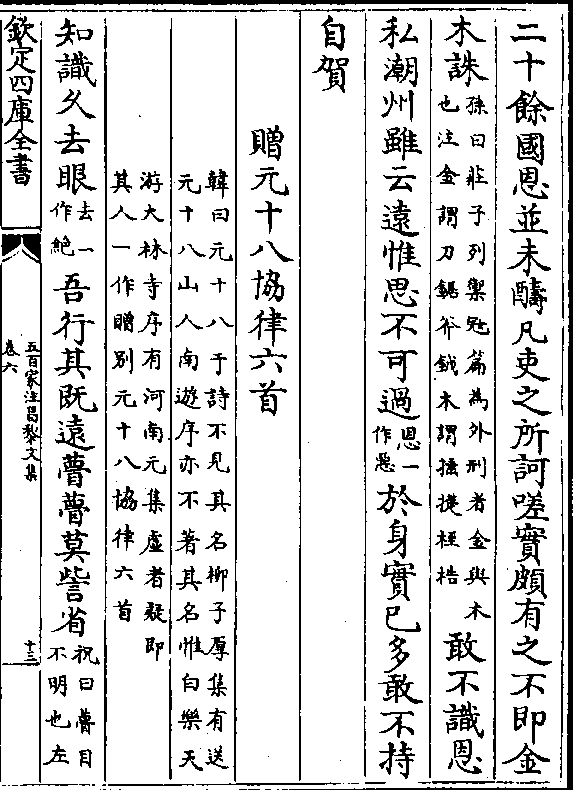 二十餘國恩並未醻凡吏之所訶嗟實頗有之不即金
木誅孫曰莊子列禦冠篇為外刑者金與木
也注金謂刀鋸斧鉞木謂捶楚桎梏
敢不識恩
私潮州雖云遠惟思不可過恩一
作惡
於身實已多敢不持
自賀
贈元十八協律六首
韓曰元十八于詩不見其名柳子厚集有送
元十八山人南遊序亦不著其名惟白樂天
游大林寺序有河南元集虛者疑即
其人一作贈別元十八協律六首
知識久去眼去一
作絶
吾行其既遠瞢瞢莫訾省祝曰瞢目
不明也左
欽定四庫全書
五百家注昌黎文集
卷六
十三